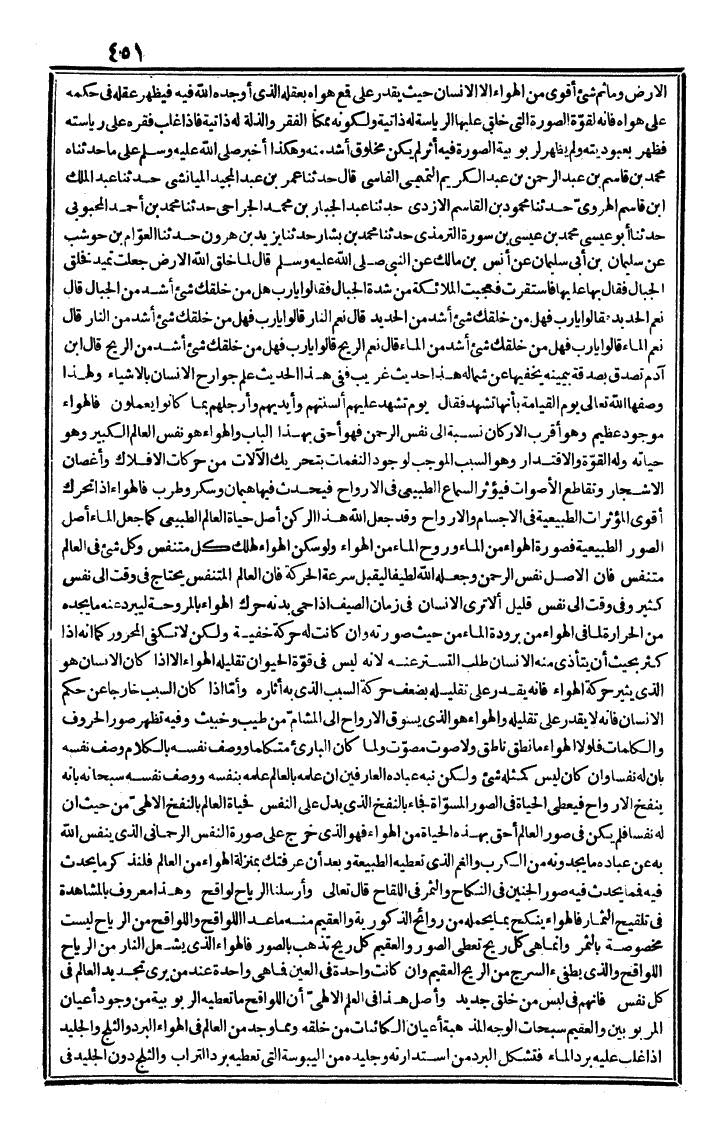 ٤٥١
الارض وما ثم شئ أقوى من الهواء الا الانسان حيث يقدر على قمع هواه بعقله الذى أوجده الله فيه فيظهر عقله فى حكمه
على هواه فانه لقوّة الصورة التى خلق عليها الرياسة له ذاتية ولكونه ممكنا الفقر والذلة له ذاتية فاذا غلب فقره على رياسته
فظهر بعبوديته ولم يظهر لربوبية الصورة فيه أثر لم يكن مخلوق أشد منه وهكذا أخبر صلى الله عليه وسلم على ما حدثناه
محمد بن قاسم بن عبد الرحمن بن عبد الكريم التميمى الفاسى قال حدثنا عمر بن عبد المجيد الميانشى حدثنا عبد الملك
ابن قاسم الهروىّ حدثنا محمود بن القاسم الازدى حدثنا عبد الجبار بن محمد الجراحى حدثنا محمد بن أحمد المحبوبى
حدثنا أبو عيسى محمد بن عيسى بن سورة الترمذى حدثنا محمد بن بشار حدثنا يزيد بن هرون حدثنا العوّام بن حوشب
عن سليمان بن أبى سليمان عن أنس بن مالك عن النبى صلى الله عليه وسلم قال لما خلق الله الارض جعلت تميد فخلق
الجبال فقال بها عليها فاستقرت فعجبت الملائكة من شدة الجبال فقالوا يارب هل من خلقك شئ أشد من الجبال قال
نعم الحديد فقالوا يارب فهل من خلقك شئ أشد من الحديد قال نعم النار قالوا يارب فهل من خلقك شئ أشد من النار قال
نعم الماء قالوا يارب فهل من خلقك شئ أشد من الماء قال نعم الريح قالوا يارب فهل من خلقك شئ أشد من الريح قال ابن
آدم تصدق بصدقة بيمينه يخفيها عن شماله هذا حديث غريب ففى هذا الحديث علم جوارح الانسان بالاشياء ولهذا
وصفها الله تعالى يوم القيامة بأنها تشهد فقال يوم تشهد عليهم ألسنتهم وأيديهم وأرجلهم بما كانوا يعملون فالهواء
موجود عظيم وهو أقرب الاركان نسبة الى نفس الرحمن فهو أحق بهذا الباب والهواء هو نفس العالم الكبير وهو
حياته وله القوّة والاقتدار وهو السبب الموجب لوجود النغمات بتحريك الآلات من حركات الافلاك وأغصان
الاشجار وتقاطع الأصوات فيؤثر السماع الطبيعى فى الارواح فيحدث فيها هيمان وسكر وطرب فالهواء اذا تحرك
أقوى المؤثرات الطبيعية فى الاجسام والارواح وقد جعل الله هذا الركن أصل حياة العالم الطبيعى كما جعل الماء أصل
الصور الطبيعية فصورة الهواء من الماء وروح الماء من الهواء ولو سكن الهواء لهلك كل متنفس وكل شئ فى العالم
متنفس فان الاصل نفس الرحمن وجعله الله لطيفا ليقبل سرعة الحركة فان العالم المتنفس يحتاج فى وقت الى نفس
كثير وفى وقت الى نفس قليل ألا ترى الانسان فى زمان الصيف اذا حمى بدنه حرك الهواء بالمروحة ليبرد عنه ما يجده
من الحرارة لما فى الهواء من برودة الماء من حيث صورته وان كانت له حركة خفية ولكن لا تكفى المحرور كما انه اذا
كثر بحيث أن يتأذى منه الانسان طلب التستر عنه لانه ليس فى قوّة الحيوان تقليله الهواء الا اذا كان الانسان هو
الذى يثير حركة الهواء فانه يقدر على تقليله بضعف حركة السبب الذى به أثاره وأمّا اذا كان السبب خارجا عن حكم
الانسان فانه لا يقدر على تقليله والهواء هو الذى يسوق الارواح الى المشامّ من طيب وخبيث وفيه تظهر صور الحروف
والكلمات فلولا الهواء ما نطق ناطق ولا صوت مصوّت ولما كان البارئ متكلما ووصف نفسه بالكلام وصف نفسه
بان له نفسا وان كان ليس كمثله شئ ولكن نبه عباده العارفين ان علمه بالعالم علمه بنفسه ووصف نفسه سبحانه بانه
ينفخ الارواح فيعطى الحياة فى الصور المسوّاة فجاء بالنفخ الذى يدل على النفس فحياة العالم بالنفخ الالهىّ من حيث ان
له نفسا فلم يكن فى صور العالم أحق بهذه الحياة من الهواء فهو الذى خرج على صورة النفس الرحمانى الذى ينفس الله
به عن عباده ما يجدونه من الكرب والغم الذى تعطيه الطبيعة وبعد أن عرفتك بمنزلة الهواء من العالم فلنذكر ما يحدث
فيه فمما يحدث فيه صور الجنين فى النكاح والثمر فى اللقاح قال تعالى وأرسلنا الرياح لواقح وهذا معروف بالمشاهدة
فى تلقيح الثمار فالهواء ينكح بما يحمله من روائح الذكورية والعقيم منه ما عدا اللواقح واللواقح من الرياح ليست
مخصوصة بالثمر وانما هى كل ريح تعطى الصور والعقيم كل ريح تذهب بالصور فالهواء الذى يشعل النار من الرياح
اللواقح والذى يطفئ السرج من الريح العقيم وان كانت واحدة فى العين فما هى واحدة عند من يرى تجديد العالم فى
كل نفس فانهم فى لبس من خلق جديد وأصل هذا فى العلم الالهىّ أن اللواقح ما تعطيه الربوبية من وجود أعيان
المربوبين والعقيم سبحات الوجه المذهبة أعيان الكائنات من خلقه ومما وجد من العالم فى الهواء البرد والثلج والجليد
اذا غلب عليه برد الماء فتشكل البرد من استدارته وجليده من اليبوسة التى تعطيه برد التراب والثلج دون الجليد فى